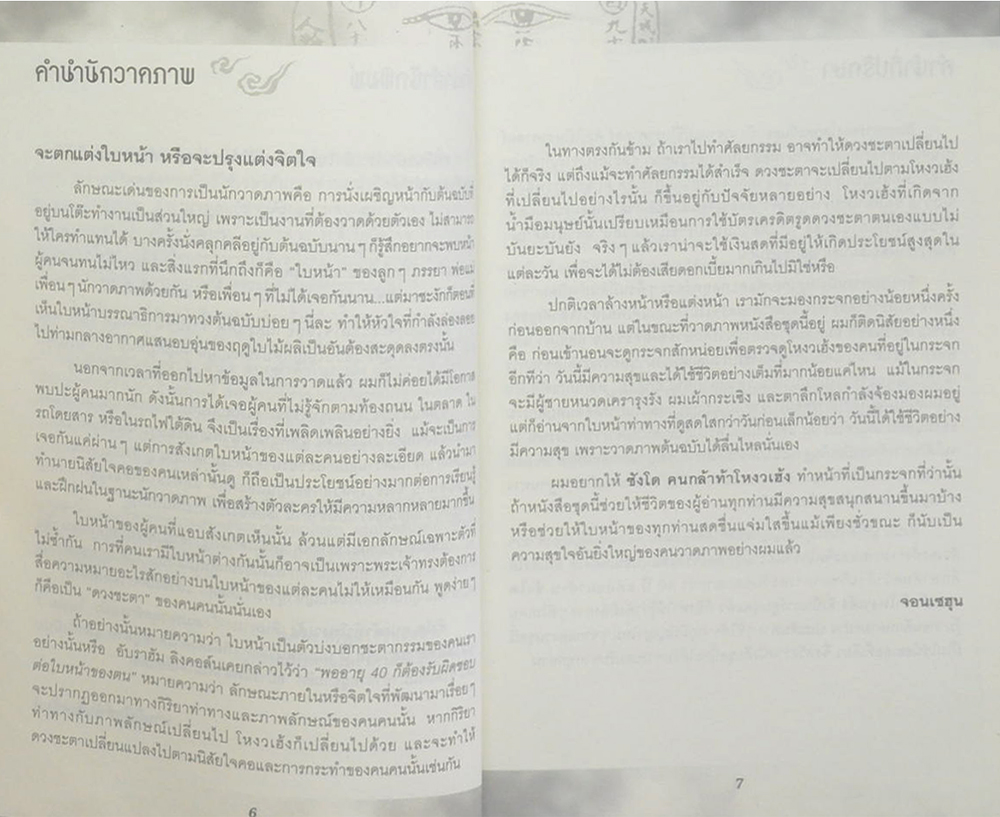 คำนำนักวาดภาพ
จะตกแต่งใบหน้า หรือจะปรุงแต่งจิตใจ
ลักษณะเด่นของการเป็นนักวาดภาพคือ การนั่งเผชิญหน้ากับต้นฉบับที่
อยู่บนโต๊ะทำงานเป็นส่วนใหญ่ เพราะเป็นงานที่ต้องวาดด้วยตัวเอง ไม่สามารถ
ให้ใครทำแทนได้ บางครั้งนั่งคลุกคลีอยู่กับต้นฉบับนานๆ ก็รู้สึกอยากจะพบหน้า
ผู้คนจนทนไม่ไหว และสิ่งแรกที่นึกถึงก็คือ "ใบหน้า" ของลูกๆ ภรรยา พ่อแม่
เพื่อนๆ นักวาดภาพด้วยกัน หรือเพื่อนๆ ที่ไม่ได้เจอกันนาน...แต่มาชะงักก็ตอนที่
เห็นใบหน้าบรรณาธิการมาทวงต้นฉบับบ่อยๆ นี่ละ ทำให้หัวใจที่กำลังล่องลอย
ไปท่ามกลางอากาศแสนอบอุ่นของฤดูใบไม้ผลิเป็นอันต้องสะดุดลงตรงนั้น
นอกจากเวลาที่ออกไปหาข้อมูลในการวาดแล้ว ผมก็ไม่ค่อยได้มีโอกาส
พบปะผู้คนมากนัก ดังนั้นการได้เจอผู้คนที่ไม่รู้จักตามท้องถนน ในตลาด ใน
รถโดยสาร หรือในรถไฟใต้ดิน จึงเป็นเรื่องที่เพลิดเพลินอย่างยิ่ง แม้จะเป็นการ
เจอกันแค่ผ่านๆ แต่การสังเกตใบหน้าของแต่ละคนอย่างละเอียด แล้วนำมา
ทำนายนิสัยใจคอของคนเหล่านั้นดู ก็ถือเป็นประโยชน์อย่างมากต่อการเรียนรู้
และฝึกฝนในฐานะนักวาดภาพ เพื่อสร้างตัวละครให้มีความหลากหลายมากขึ้น
ใบหน้าของผู้คนที่แอบสังเกตเห็นนั้น ล้วนแต่มีเอกลักษณ์เฉพาะตัวที่
ไม่ซ้ำกัน การที่คนเรามีใบหน้าต่างกันนั้นก็อาจเป็นเพราะพระเจ้าทรงต้องการ
สื่อความหมายอะไรสักอย่างบนใบหน้าของแต่ละคนไม่ให้เหมือนกัน พูดง่ายๆ
ก็คือเป็น "ดวงชะตา" ของคนคนนั้นนั่นเอง
ถ้าอย่างนั้นหมายความว่า ใบหน้าเป็นตัวบ่งบอกชะตากรรมของคนเรา
อย่างนั้นหรือ อับราฮัม ลิงคอล์นเคยกล่าวไว้ว่า "พออายุ 40 ก็ต้องรับผิดชอบ
ต่อใบหน้าของตน" หมายความว่า ลักษณะภายในหรือจิตใจที่พัฒนามาเรื่อยๆ
จะปรากฏออกมาทางกิริยาท่าทางและภาพลักษณ์ของคนคนนั้น หากกิริยา
ท่าทางกับภาพลักษณ์เปลี่ยนไป โหงวเฮ้งก็เปลี่ยนไปด้วย และจะทำให้
ดวงชะตาเปลี่ยนแปลงไปตามนิสัยใจคอและการกระทำของคนคนนั้นเช่นกัน
6
ในทางตรงกันข้าม ถ้าเราไปทำศัลยกรรม อาจทำให้ดวงชะตาเปลี่ยนไป
ได้ก็จริง แต่ถึงแม้จะทำศัลยกรรมได้สำเร็จ ดวงชะตาจะเปลี่ยนไปตามโหงวเฮ้ง
ที่เปลี่ยนไปอย่างไรนั้น ก็ขึ้นอยู่กับปัจจัยหลายอย่าง โหงวเฮ้งที่เกิดจาก
น้ำมือมนุษย์นั้นเปรียบเหมือนการใช้บัตรเครดิตรูดดวงชะตาตนเองแบบไม่
บันยะบันยัง จริงๆ แล้วเราน่าจะใช้เงินสดที่มีอยู่ให้เกิดประโยชน์สูงสุดใน
แต่ละวัน เพื่อจะได้ไม่ต้องเสียดอกเบี้ยมากเกินไปมิใช่หรือ
ปกติเวลาล้างหน้าหรือแต่งหน้า เรามักจะมองกระจกอย่างน้อยหนึ่งครั้ง
ก่อนออกจากบ้าน แต่ในขณะที่วาดภาพหนังสือชุดนี้อยู่ ผมก็ติดนิสัยอย่างหนึ่ง
คือ ก่อนเข้านอนจะดูกระจกสักหน่อยเพื่อตรวจดูโหงวเฮ้งของคนที่อยู่ในกระจก
อีกทีว่า วันนี้มีความสุขและได้ใช้ชีวิตอย่างเต็มที่มากน้อยแค่ไหน แม้ในกระจก
จะมีผู้ชายหนวดเครารุงรัง ผมเผ้ากระเซิง และตาลึกโหลกำลังจ้องมองผมอยู่
แต่ก็อ่านจากใบหน้าท่าทางที่ดูสดใสกว่าวันก่อนเล็กน้อยว่า วันนี้ได้ใช้ชีวิตอย่าง
มีความสุข เพราะวาดภาพต้นฉบับได้ลื่นไหลนั่นเอง
ผมอยากให้ ซังโด คนกล้าท้าโหงวเฮ้ง ทำหน้าที่เป็นกระจกที่ว่านั้น
ถ้าหนังสือชุดนี้ช่วยให้ชีวิตของผู้อ่านทุกท่านมีความสุขสนุกสนานขึ้นมาบ้าง
หรือช่วยให้ใบหน้าของทุกท่านสดชื่นแจ่มใสขึ้นแม้เพียงชั่วขณะ ก็นับเป็น
ความสุขใจอันยิ่งใหญ่ของคนวาดภาพอย่างผมแล้ว
จอนเซฮุน
7